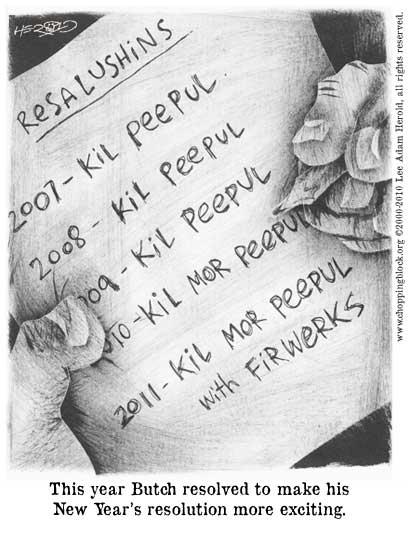 HEROLD
RESALUSHINS
2007- KIL PEEPUL.
2008- KIL PEEPUL
009- KIL PEEPUL
010-KIL MOR PEEPUL
2011- KIL MOR PEEPUL
with FIRWERKS
This year Butch resolved to make his
New Year's resolution more exciting.
www.choppingblock.org ©2000-2010 Lee Adam Herold, all rights reserved.